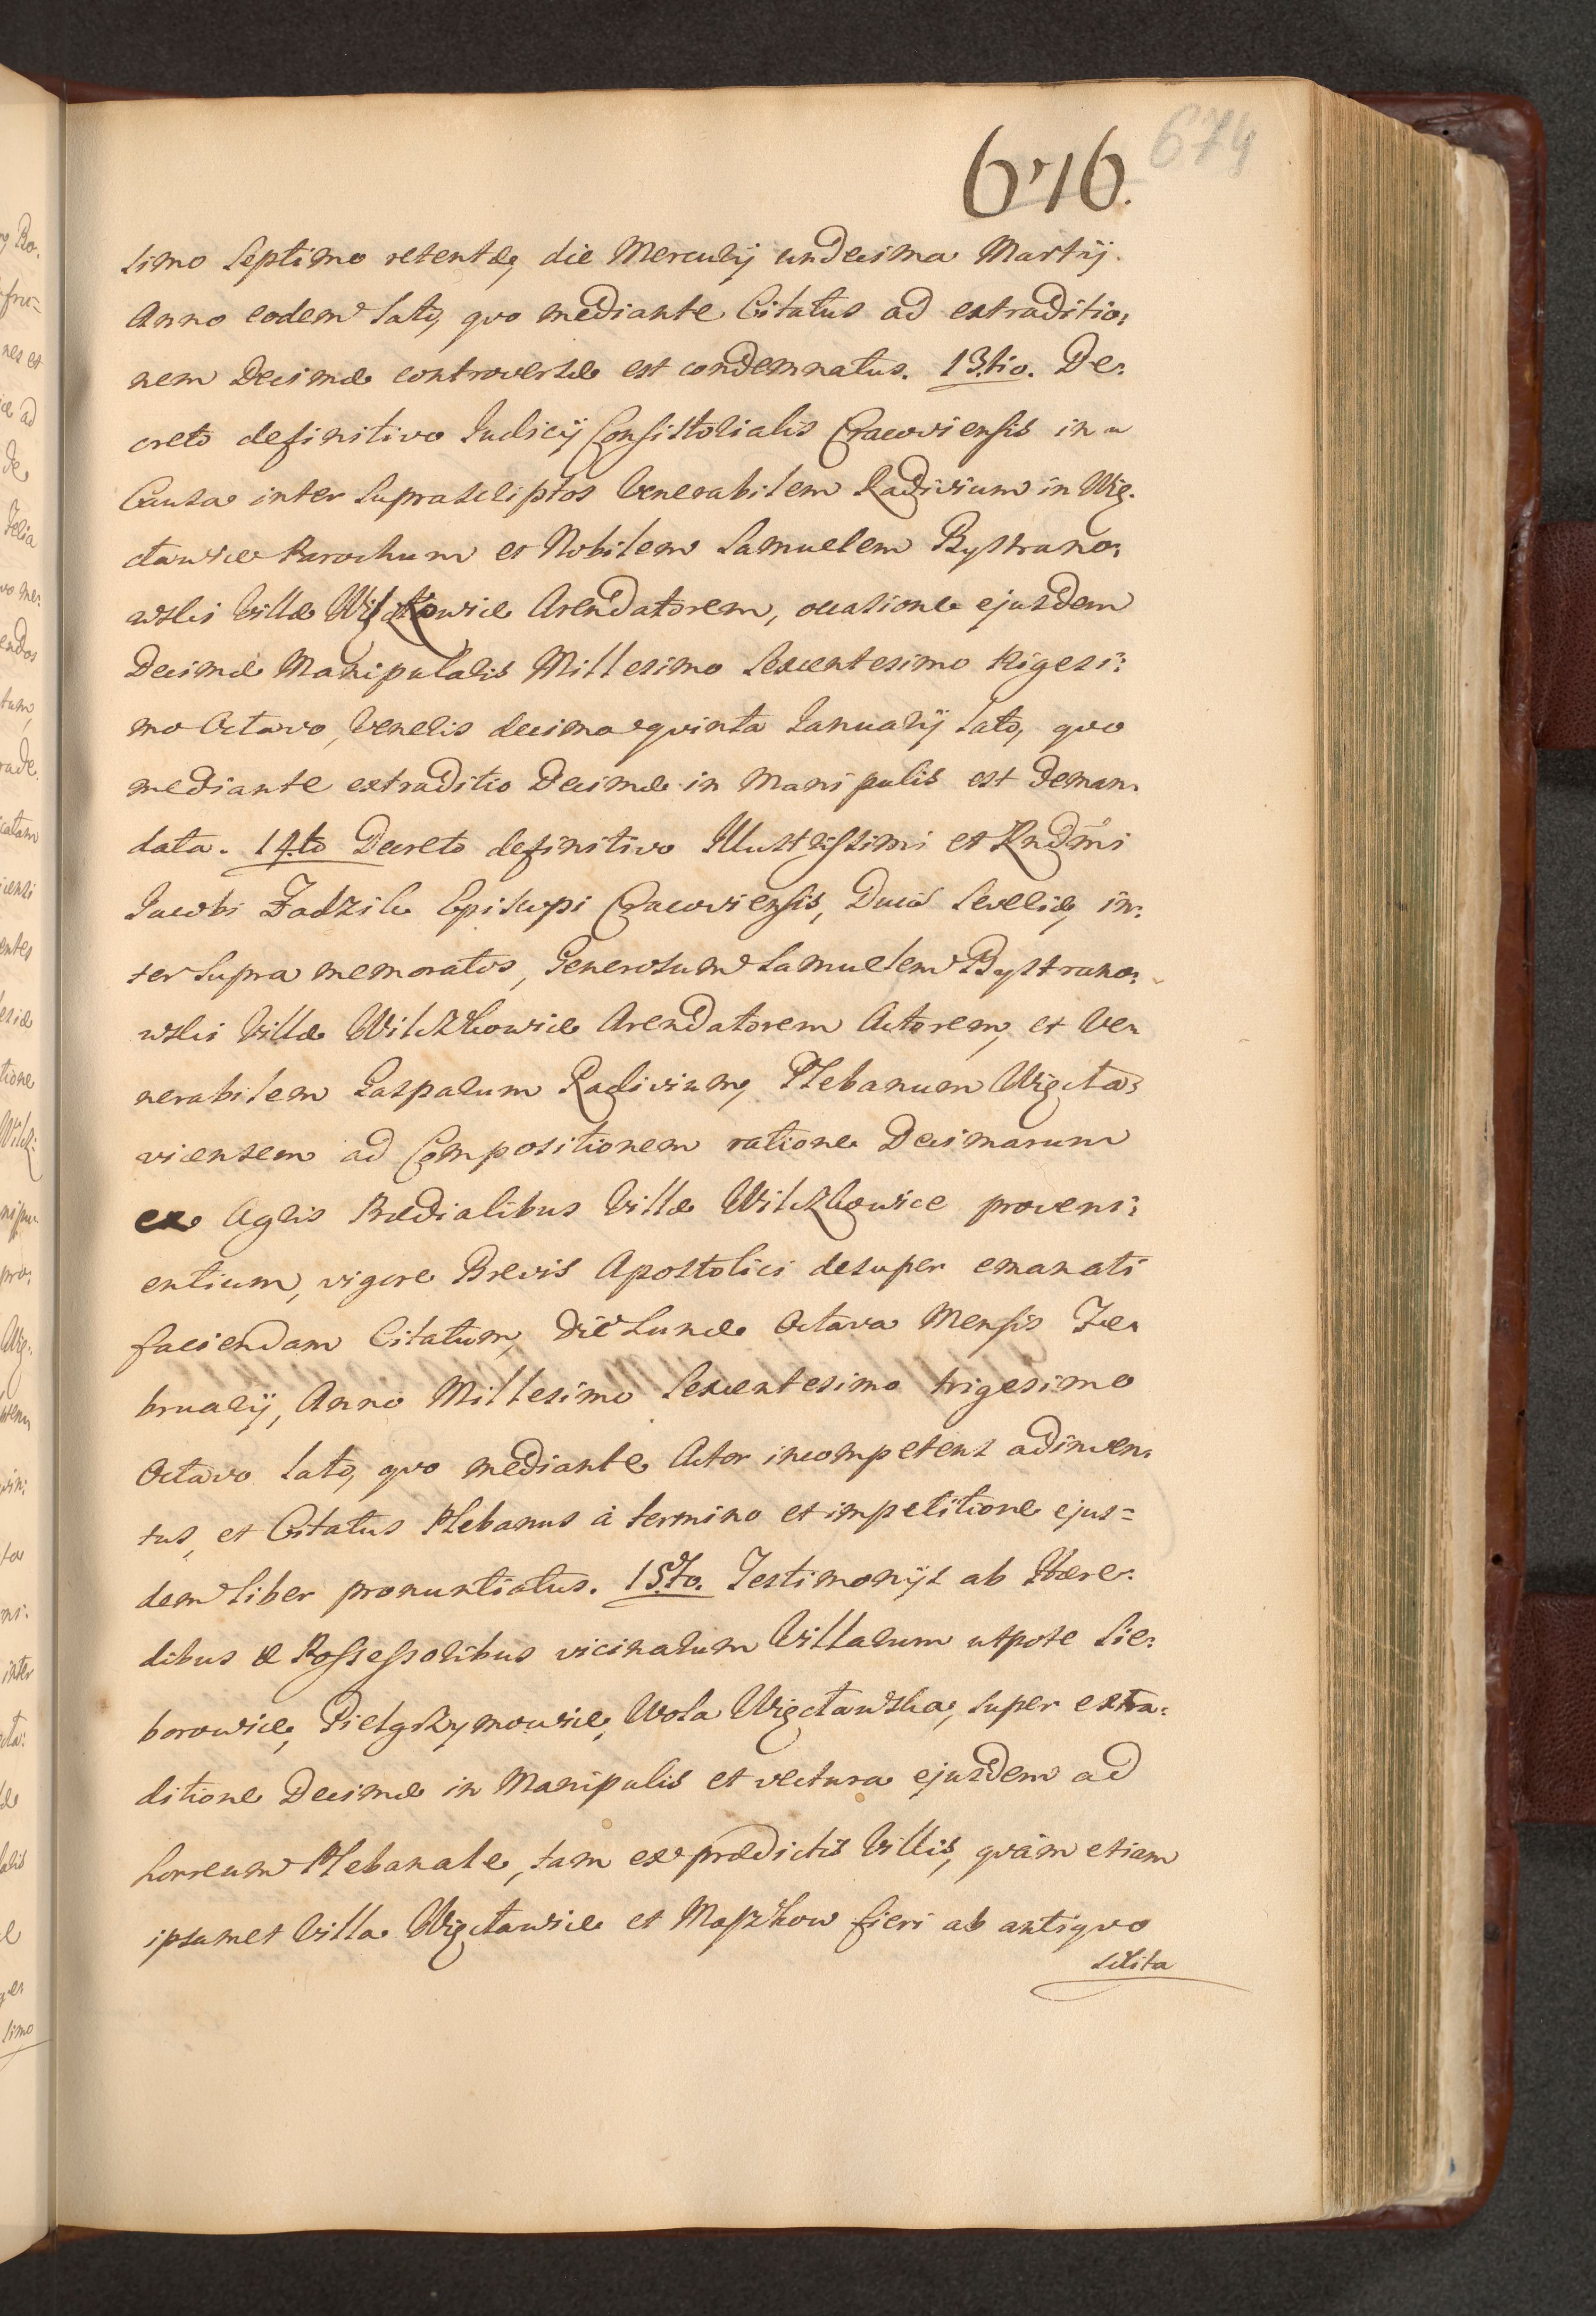 676. 674
simo Septimo retentæ, die Mercurij undecima Martij.
Anno eodem lato, qvo mediante Citatus ad extraditio:
nem Decimæ controversæ est condemnatus. 13.tio. De:
creto definitivo Judicij Consistorialis Cracoviensis in
Causa inter suprascriptos Venerabilem Radivium in Wię:
cławice Parochum et Nobilem Samuelem Bystrano:
wski Villæ Wilczkowice Arendatorem, occasione ejusdem
Decimæ Manipularis Millesimo Sexcentesimo trigesi:
mo Octavo, Veneris decima qvinta Januarij lato, qvo
mediante extraditio Decimæ in Manipulis est deman:
data. 14.to Decreto definitivo Illustrissimi et Rndmi
Jacobi Zadzik Episcopi Cracoviensis, Ducis Severiæ, in:
ter supra memoratos, Generosum Samuelem Bystrano:
wski Villæ Wilczkowice Arendatorem Actorem, et Ve:
nerabilem Gasparum Radivium, Plebanum Więcła:
viensem ad Compositionem ratione Decimarum
ex Agris Prædialibus Villæ Wilczkowice proveni:
entium, vigore Brevis Apostolici desuper emanati
faciendam Citatum, die Lunæ Octava Mensis Fe:
bruarij, Anno Millesimo Sexcentesimo trigesimo
Octavo lato, qvo mediante Actor incompetens adinven:
tus, et Citatus Plebanus à termino et impetitione ejus=
dem liber pronuntiatus. 15.to. Testimonijs ab Hære:
dibus & Possessoribus vicinarum Villarum utpote Sie:
borowice, Pielgrzymowice, Wola Więcławska, super extra:
ditione Decimæ in Manipulis et vectura ejusdem ad
horreum Plebanale, tam ex prædictis Villis, qvàm etiam
ipsamet Villa Więcławice et Maszkow fieri ab antiqvo
solita